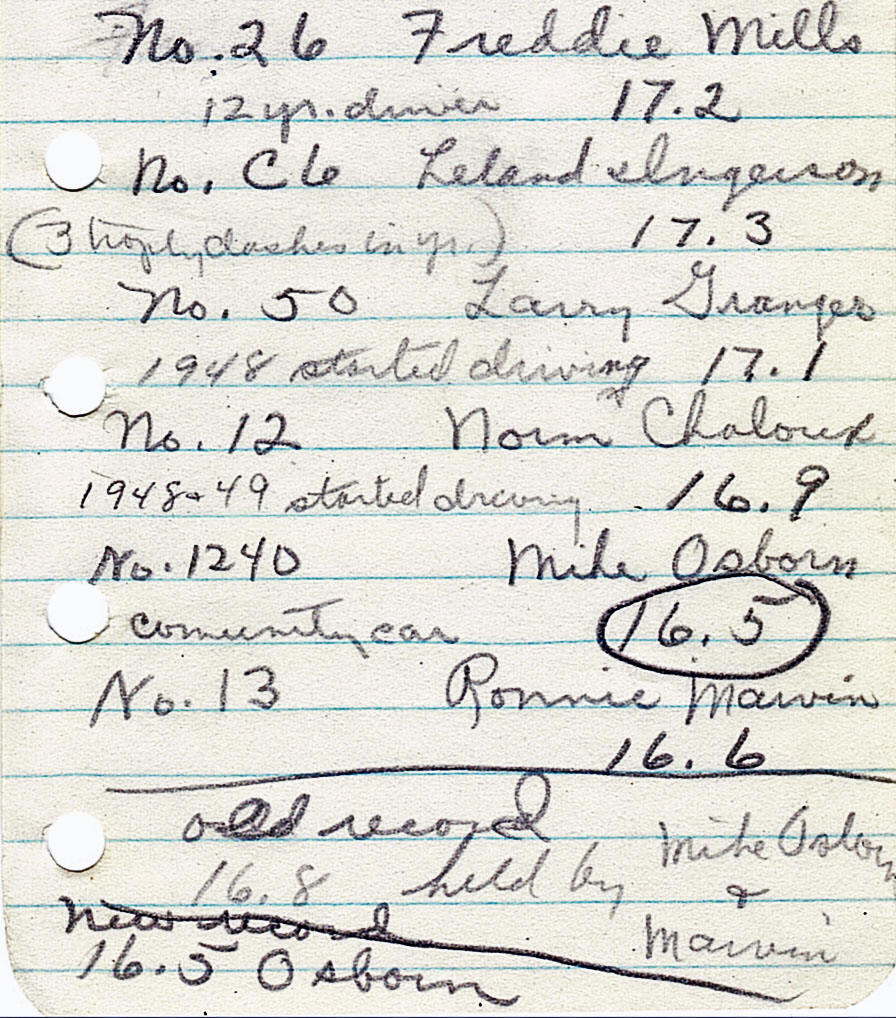 No. 26 Freddie Mills
12 yr. driver 17.2
No. C6 Leland Ingerson
(3 trophy dashes in yr.) 17.3
No. 50 Larry Granger
1948 started driving 17.1
No. 12 Norm Chaloux
1948-49 started driving 16.9
No. 1240 Mike Osborn
comunity car 16.5
No. 13 Ronnie Marvin
16.6
old record
16.8 held by Mike Osborn
&
Marvin
New record
16.5 Osborn